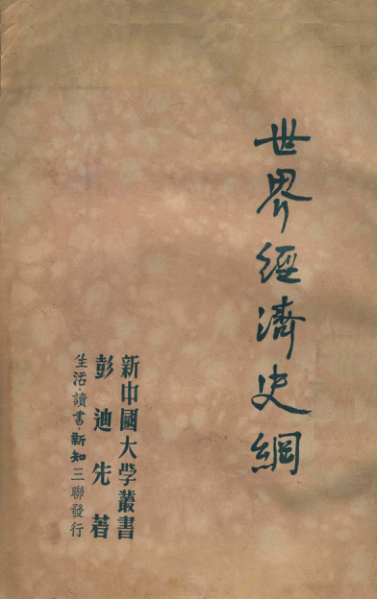 世界經濟史綱
新中國大学叢書
彭迪先著
生活·讀書·新知三聯發行